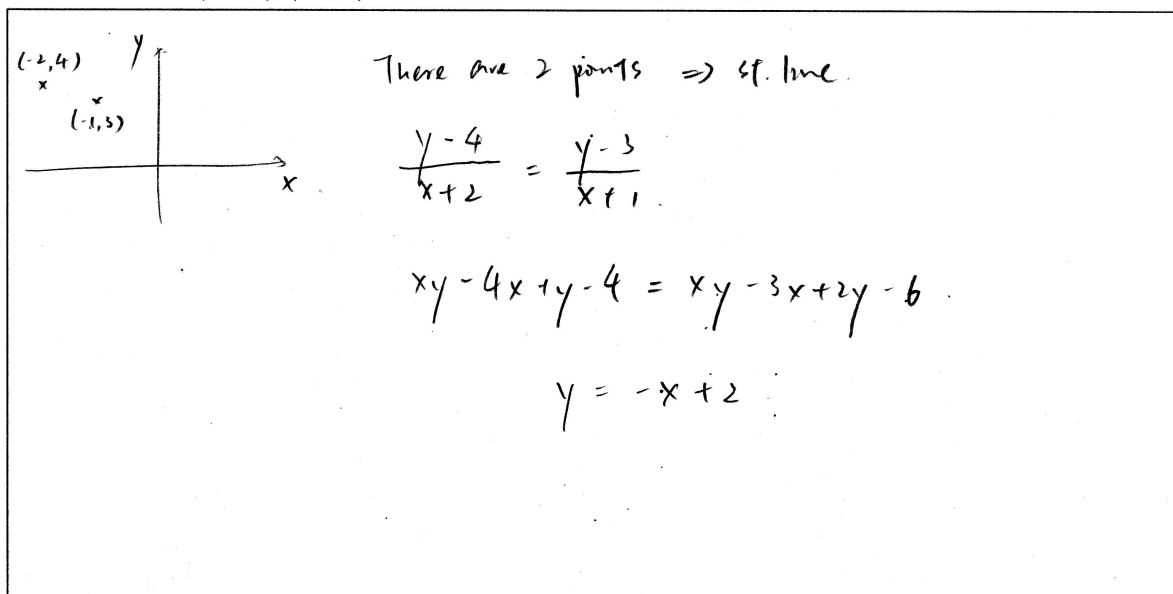 (-2,4)
y
x
x
(-1,3)
x
There are 2 points => st. line.
y-4 / x+2 = y-3 / x+1.
xy-4x+y-4 = xy-3x+2y-6.
y = -x+2